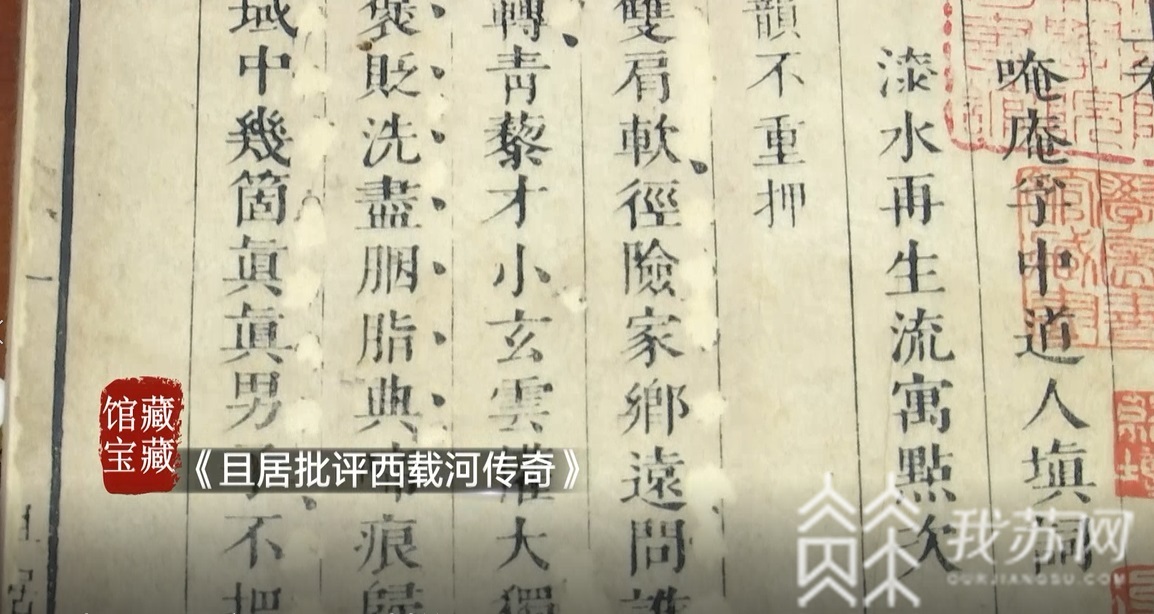 唵庵中道人塡詞
漆水再生流寓點次
韻不重押
雙肩軟徑險家鄉遠問誰
轉青藜才小玄雲大獨
褒貶洗盡胭脂典痕歸
域中幾箇眞眞男子不把
馆藏
宝藏
《且居批评西载河传奇》
我苏网
OURJIANGSU.COM